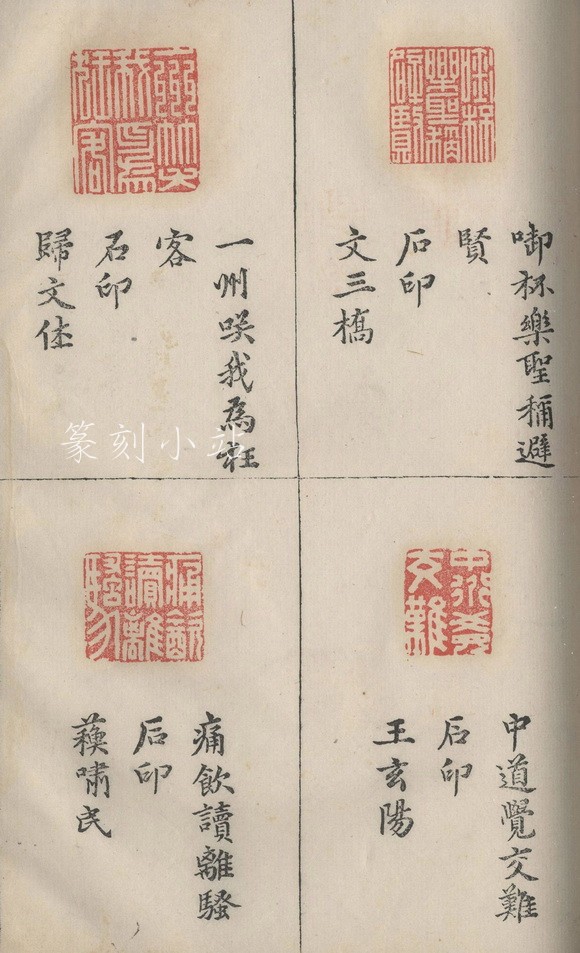 啣杯樂聖稱避
賢
石印
文三橋
一州咲我為狂
客
石印
歸文休
中道覺交難
石印
王玄陽
痛飲讀離騷
石印
蘇嘯民
篆刻小站